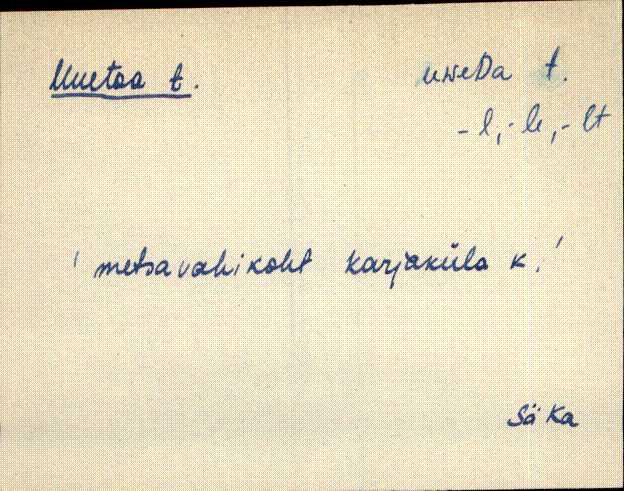 Uuetoa t. uweDa t.
-l, -le, -lt
'metsavahikoht Karjaküla k.'
Sä Ka